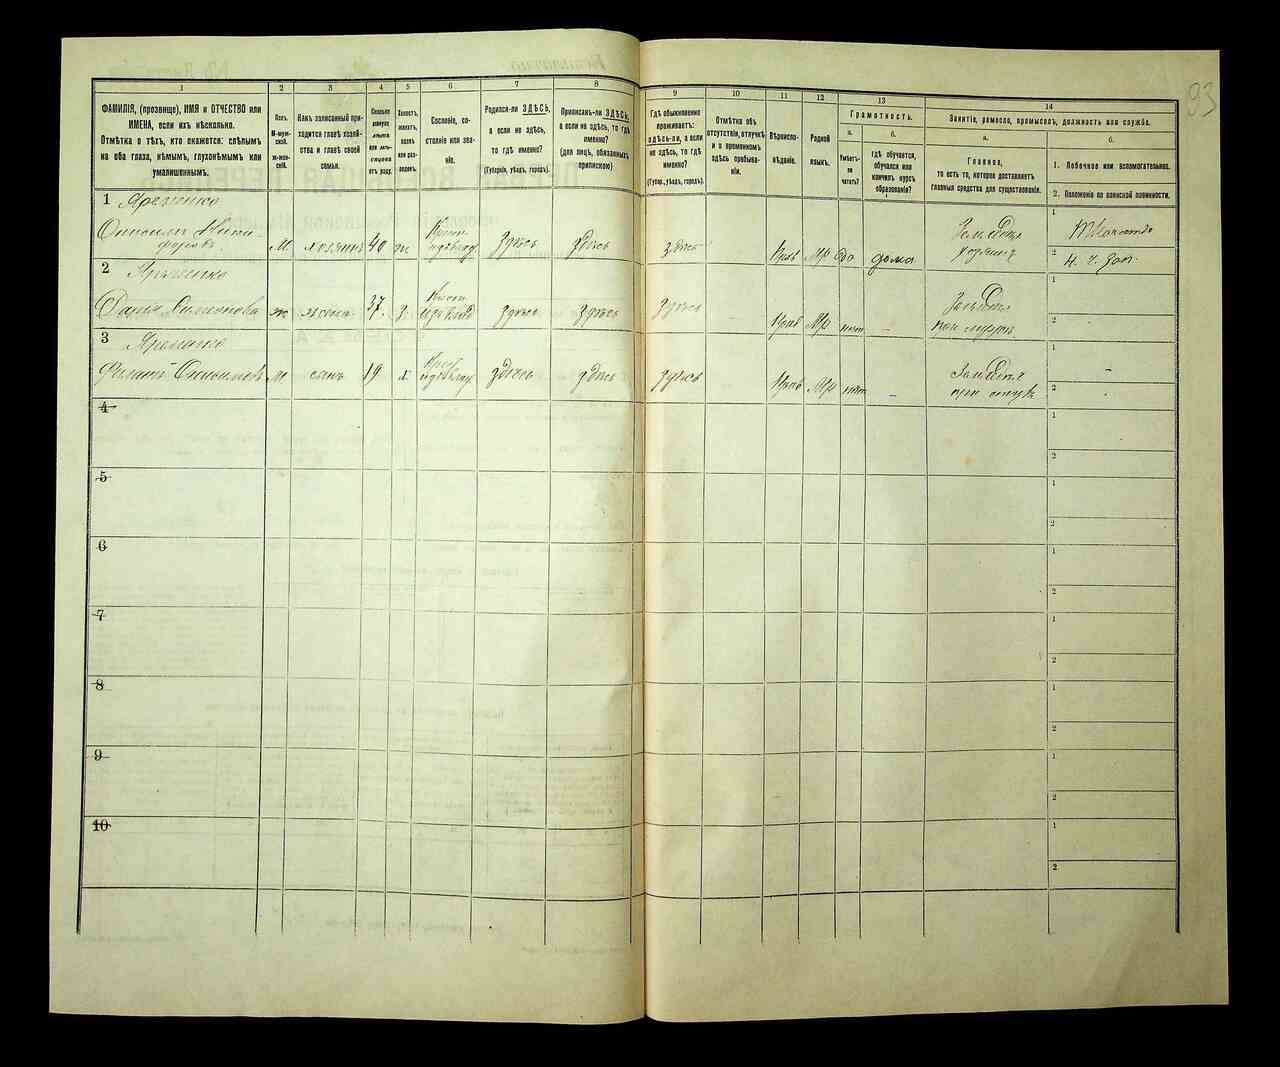 93
1
2
3
4
5
6
7
8
9
10
11
12
13
14
ФАМИЛІЯ, (прозвище), ИМЯ и ОТЧЕСТВО или
ИМЕНА, если ихъ нѣсколько.
Отмѣтка о тѣхъ, кто окажется: слѣпымъ
на оба глаза, нѣмымъ, глухонѣмымъ или
умалишеннымъ.
Полъ.
М-муж-
ской.
ж-жен-
скій.
Какъ записанный при-
ходится главѣ хозяй-
ства и главѣ своей
семьи.
Сколько
минуло
лѣтъ
или мѣ-
сяцевъ
отъ роду.
Холостъ,
женатъ,
вдовъ
или раз-
веденъ.
Сословіе, со-
стояніе или зва-
ніе.
Родился-ли ЗДѢСЬ,
а если не здѣсь,
то гдѣ именно?
(Губернія, уѣздъ, городъ).
Приписанъ-ли ЗДѢСЬ,
а если не здѣсь, то гдѣ
именно?
(для лицъ, обязанныхъ
припискою)
Гдѣ обыкновенно
проживаетъ:
здѣсь-ли, а если
не здѣсь, то гдѣ
именно?
(Губер., уѣздъ, городъ).
Отмѣтка объ
отсутствіи, отлучкѣ
и о временномъ
здѣсь пребыва-
ніи.
Вѣроиспо-
вѣданіе.
Родной
языкъ.
Грамотность.
а.
б.
Умѣетъ-
ли
читать?
гдѣ обучается,
обучался или
кончилъ курсъ
образованія?
Занятіе, ремесло, промыселъ, должность или служба.
а.
б.
Главное,
то есть то, которое доставляетъ
главныя средства для существованія.
1. Побочное или вспомогательное.
2. Положеніе по воинской повинности.
1 Яременко
Онисимъ Ники-
форовъ
М хозяинъ 40 ж Крест. здѣсь здѣсь здѣсь Прав Мр да дома
1
2 Н. ч. Зап.
2 Яременко
Дарія Симонова ж жена 37 з. Крест. здѣсь здѣсь здѣсь Прав Мр нѣтъ -
при мужѣ
1
2
3 Яременко
Филипъ Онисимовъ М сынъ 19 х Крест. здѣсь здѣсь здѣсь Прав Мр нѣтъ -
при отцѣ
1
2
4
1
2
5
1
2
6
1
2
7
1
2
8
1
2
9
1
2
10
1
2